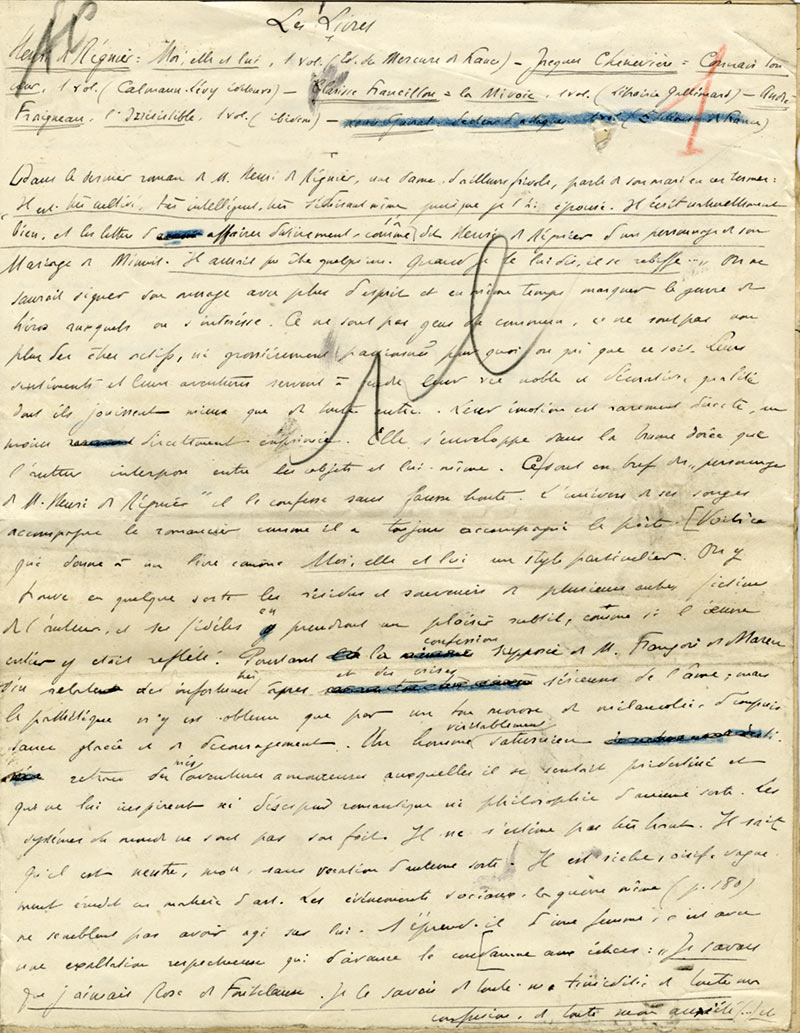 Les Livres
Henri de Régnier : Moi, elle et lui, 1 vol. (Ed. du Mercure de France) – Jacques Chenevière = Connais ton
cœur, 1 vol. (Calmann-Lévy éditeurs) – Clarisse Francillon = La Mivoie, 1 vol. (Librairie Gallimard) – André
Fraigneau, l'Irrésistible, 1 vol. (ibidem) –
1
Dans le dernier roman de M. Henri de Régnier, une dame, d'ailleurs frivole, parle de son mari en ces termes :
"Il est très cultivé, très intelligent, très séduisant même puisque je l'ai épousé. Il écrit naturellement
bien, et les lettres d' affaires deviennent comme dit Henri de Régnier d'un personnage de son
Mariage de Minuit. Il aurait pu être quelqu'un. Quand je le lui dis, il se rebiffe..." On ne
saurait signer son ouvrage avec plus d'esprit et en même temps marquer le genre de
héros auxquels on s'intéresse. Ce ne sont pas gens du commun, ce ne sont pas non
plus des êtres actifs, ni grossièrement passionnés pour quoi ou qui que ce soit. Leurs
sentiments et leurs aventures servent à rendre leur vie noble et décorative, qualité
dont ils jouissent mieux que de toute autre. Leur émotion est rarement directe, du
moins directement exprimée. Elle s'enveloppe dans la brume dorée que
l'auteur interpose entre les objets et lui-même. Ce sont en bref des "personnages
de M. Henri de Régnier" et il le confesse sans fausse honte. L'univers de ses songes
accompagne le romancier comme il a toujours accompagné le poète. [Voilà ce
qui donne à un livre comme Moi, elle et lui un style particulier. On y
trouve en quelque sorte les résidus et souvenirs de plusieurs autres fictions
de l'auteur, et ses fidèles en prendront un plaisir subtil, comme si l'œuvre
entier y était reflété. Pourtant la confession supposée de M. François de
des infortunes très âpres et des crises sérieuses de l'âme ; mais
le pathétique n'y est obtenu que par un ton morose de mélancolie, d'impuis-
sance glacée et de découragement. Un homme véritablement saturnien
retrace des aventures amoureuses auxquelles il se sentait prédestiné et
qui ne lui inspirent ni désespoir romantique ni philosophie d'aucune sorte. Les
systèmes du monde ne sont pas son fait. Il ne s'estime pas très haut. Il sait
qu'il est neutre, mou, sans vocation d'aucune sorte. Il est riche, oisif, vague-
ment érudit en matière d'art. Les événements sociaux, la guerre même (p. 180)
ne semblent pas avoir agi sur lui. S'éprend-il d'une femme, c'est avec
une exaltation respectueuse qui d'avance le condamne aux échecs : "Je savais
que j'aimais Rose de . Je le savais de toute ma timidité, de toute ma
confusion, de toute mon anxiété (...) et